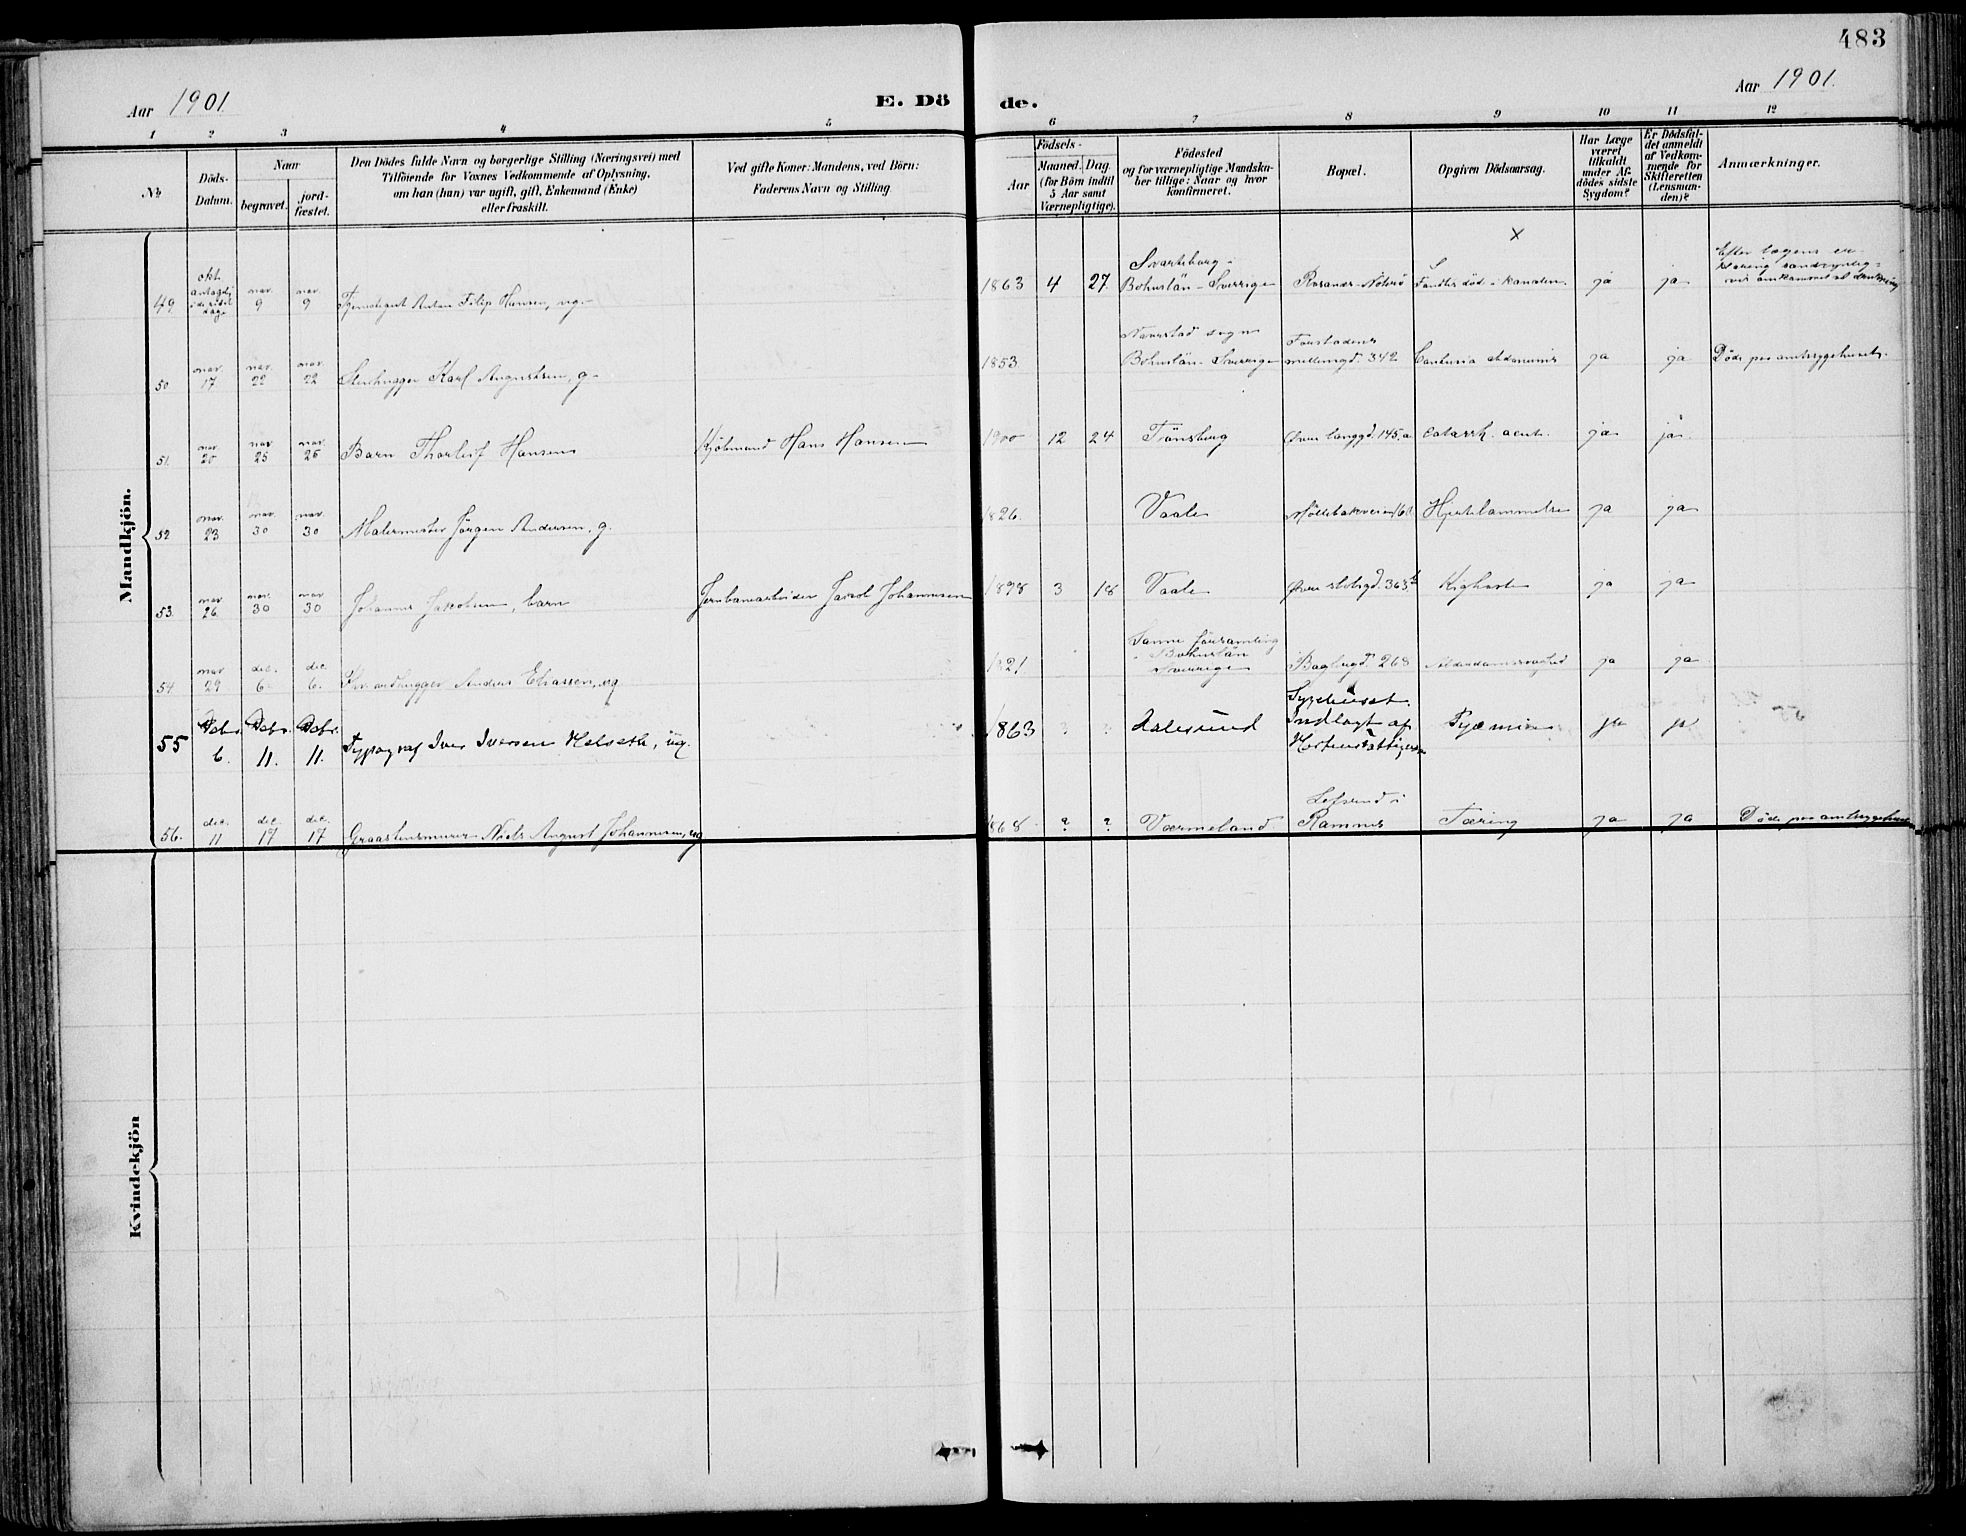 483
Aar 1901.
E. Dö
de.
Aar 1901.
1 2 3 4 5 6 7 8 9 10 11 12
№
Döds-Datum.
Naar
begravet.
jord-fæstet.
Den Dödes fulde Navn og borgerlige Stilling (Næringsvei) med
Tilföiende for Voxnes Vedkommende af Oplysning,
om han (hun) var ugift, gift, Enkemand (Enke)
eller fraskilt.
Ved gifte Koner: Mandens, ved Börn:
Faderens Navn og Stilling.
Födsels-
Aar
Maaned. Dag.
(for Börn indtil
5 Aar samt
Værnepligtige).
Födested
og for værnepligtige Mandska-
ber tillige: Naar og hvor
konfirmeret.
Bopæl.
Opgiven Dödsaarsag.
Har Læge
været
tilkaldt
under Af-
dödes sidste
Sygdom?
Er Dödsfal-
det anmeldt
af Vedkom-
mende for
Skifteretten
(Lensman-
den)?
Anmærkninger.
Mandkjön.
49. okt. nov. 9 nov. 9 Tjenestegut Anton Filip Hansen, ug. 1863 4 27. Svarteborg - Bohuslän - Sverrige Rosanæs - Nøterø Fundtes død i kanalen ja ja Efter lægens er-
klæring sandsynlig-
vis omkommet ved drukning
x
50. nov. 17 nov. 22 nov. 22 Stenhugger Karl Augustsen, g. 1853 Naverstad sogn Bohuslän - Sverrige 342 ja ja Døde paa amtssygehuset.
51. nov. 20 nov. 25 nov. 25 Barn Thorleif Hansen Kjøbmand Hans Hansen 1900 12 24 Tönsberg Øvre langgd. 145.a catarrh. acut. ja ja
52 nov. 23 nov. 30 nov. 30 Malermester Jörgen Andersen, g. 1826. Vaale Hjertelammelse ja ja
53. nov. 26. nov. 30 nov. 30 Johannes Jakobsen, barn Jernbanearbeider Jacob Johannesen 1898 3 18 Vaale Kighoste ja ja
54 nov. 29 dec. 6 dec. 6. Anders Eliassen, ug 1821 Sanne församling Bohuslän Sverrige Baglergd. 268 Alderdomssvaghed ja ja
55 Decbr. 6. Decbr. 11. Decbr. 11. Typograf Iver Iversen Helseth, ug. 1863 ? ? Aalesund Sygehuset. Indlagt af Hortens Fattigvæsen Pyæmia ja ja
56. dec. 11 dec. 17 dec. 17 Graastensmurer Niels August Johannesen, ug 1868 ? ? Værmeland Lefsrud i Ramnes Tæring ja ja Døde paa amtssygehuset
Kvindekjön